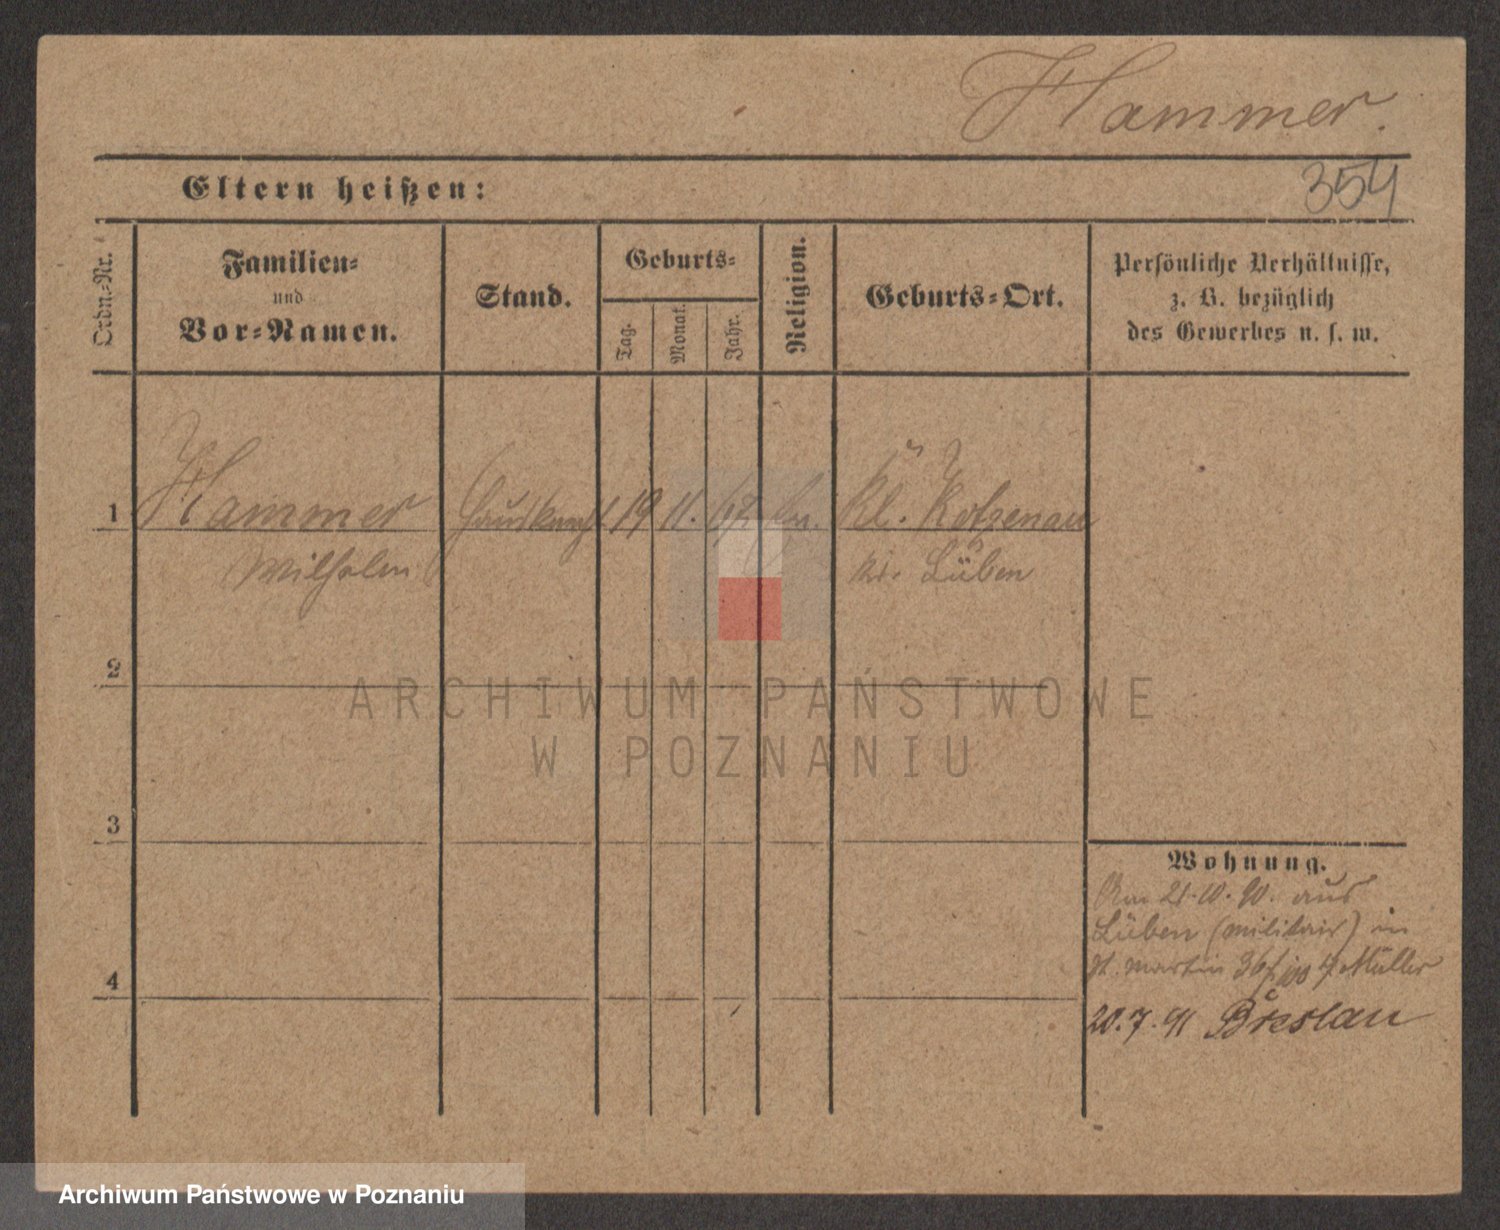 Hammer.
354
Eltern heißen:
Ordn.-Nr.
Familien-
und
Vor-Namen.
Stand.
Geburts-
Tag.
Monat.
Jahr.
Religion.
Geburts-Ort.
Persönliche Verhältnisse,
z. B. bezüglich
des Gewerbes u. s. w.
1
Hammer
19
11.
Kl. Kotzenau
Wilhelm
Kr. Lüben
2
3
4
Wohnung.
Am 21.10.90. aus
Lüben (Militair) in
St. Martin 36 Müller
20.7.91 Breslau
ARCHIWUM PAŃSTWOWE
W POZNANIU
Archiwum Państwowe w Poznaniu